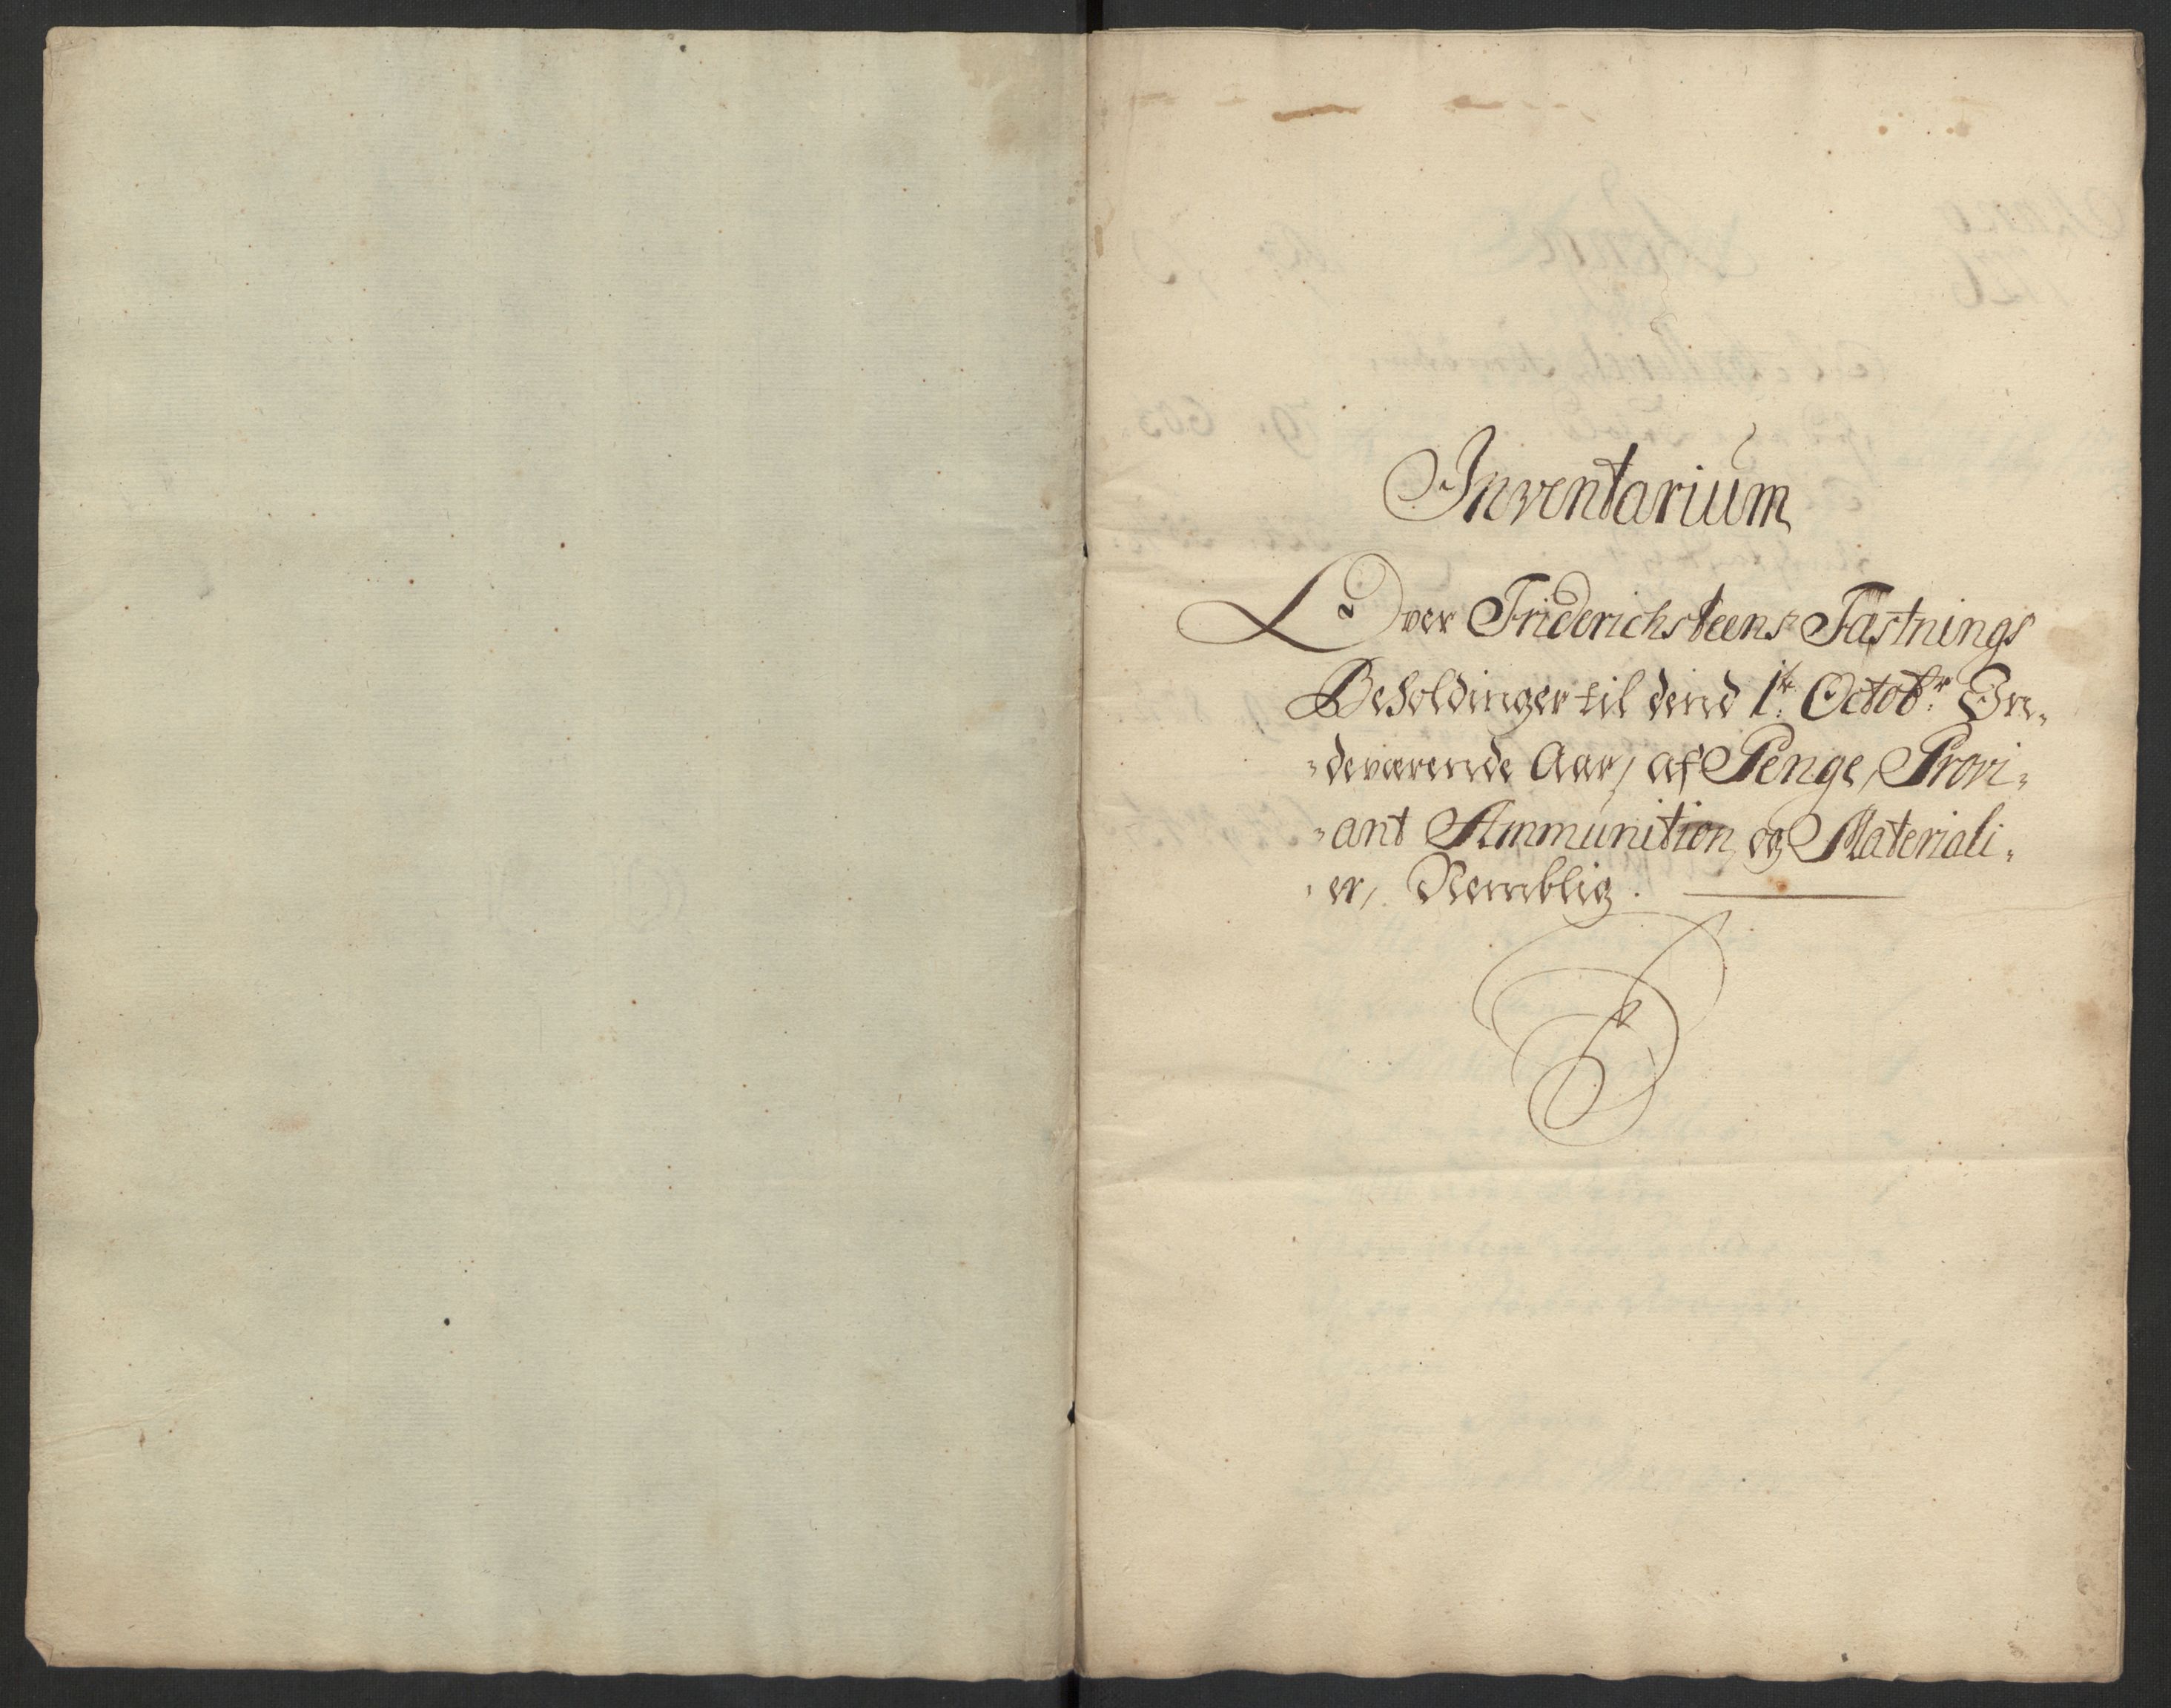 Inventarium
Over Friderichsteens Fæstnings
Beholdinger til dend 1te Octobr: In-
-deværende Aar, af Penge, Provi-
-ant Ammunition og Materiali-
-er, Nemblig.